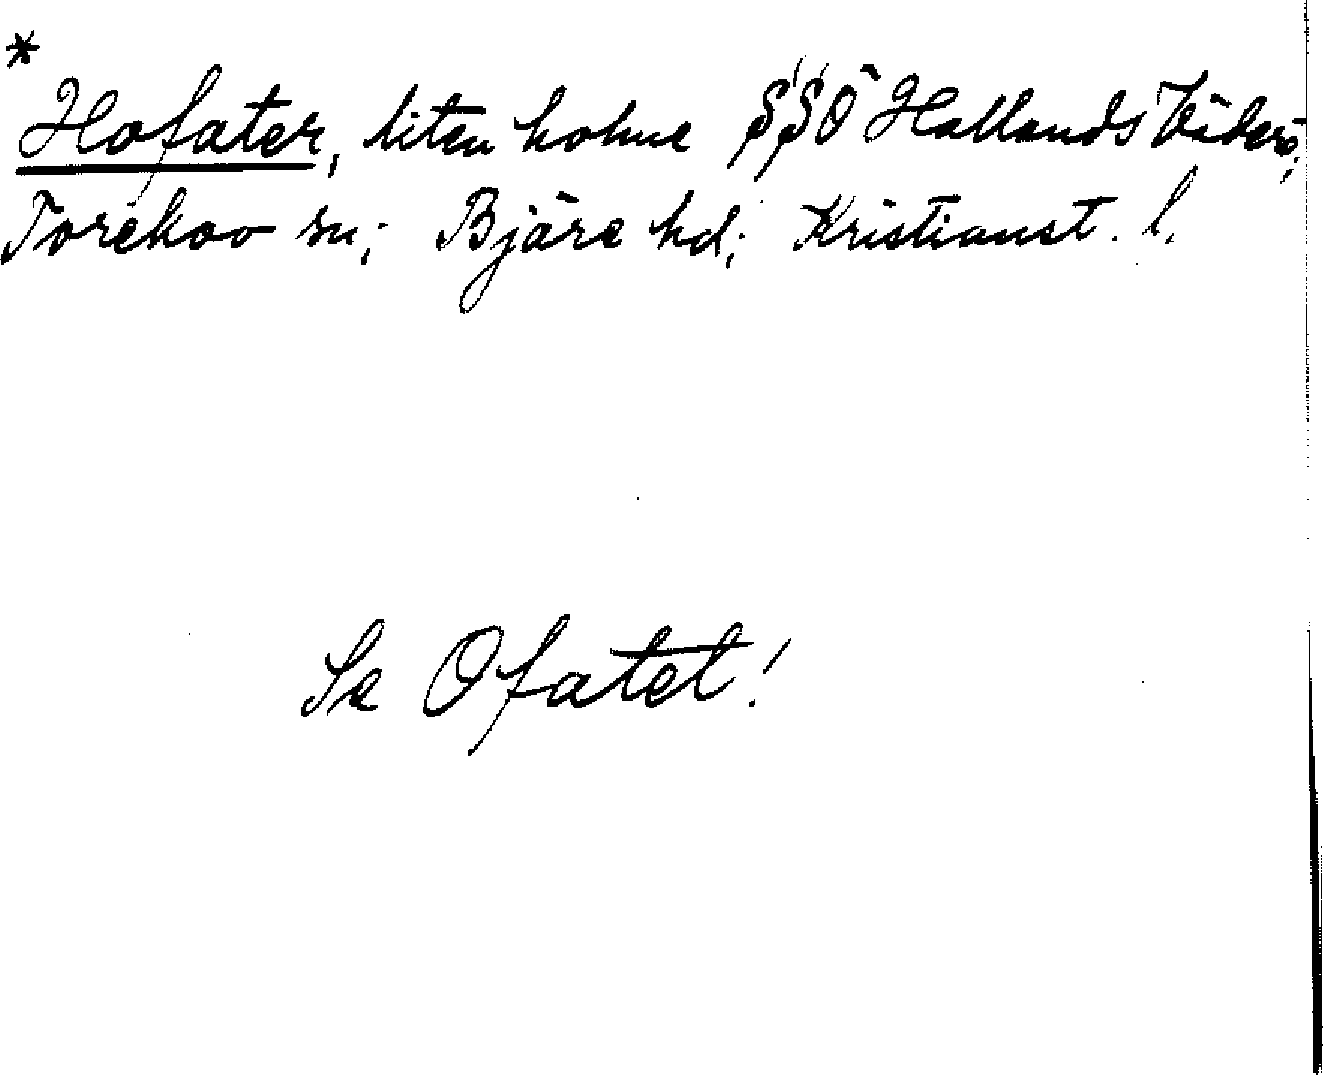 *
Hofater, liten holme SSÖ Hallands Väderö;
Torekov sn; Bjäre hd; Kristianst. l.
Se Ofatet!